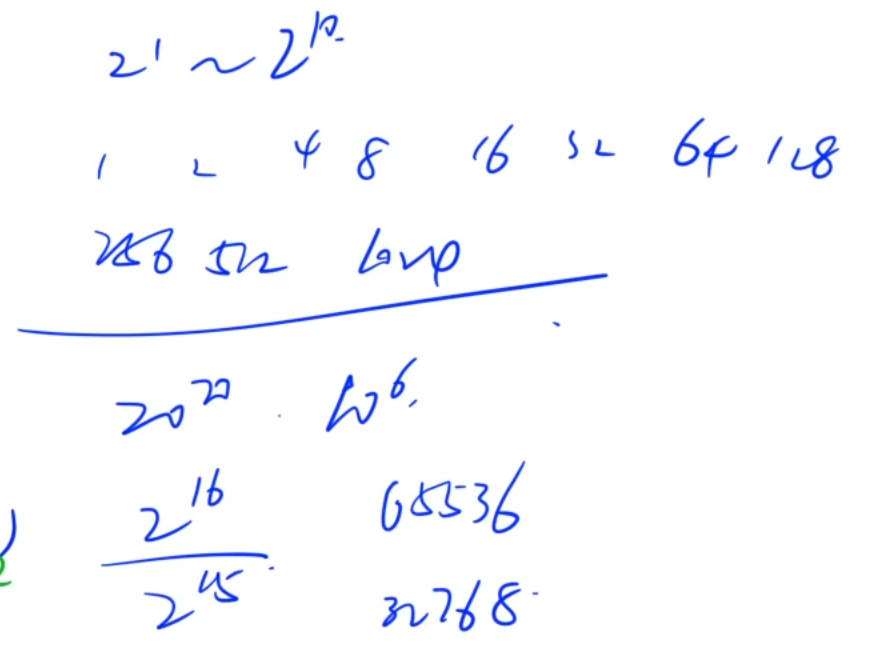 2^1 ~ 2^10
1 2 4 8 16 32 64 128
256 512 1024
20^20 10^6
2^16 65536
2^15 32768